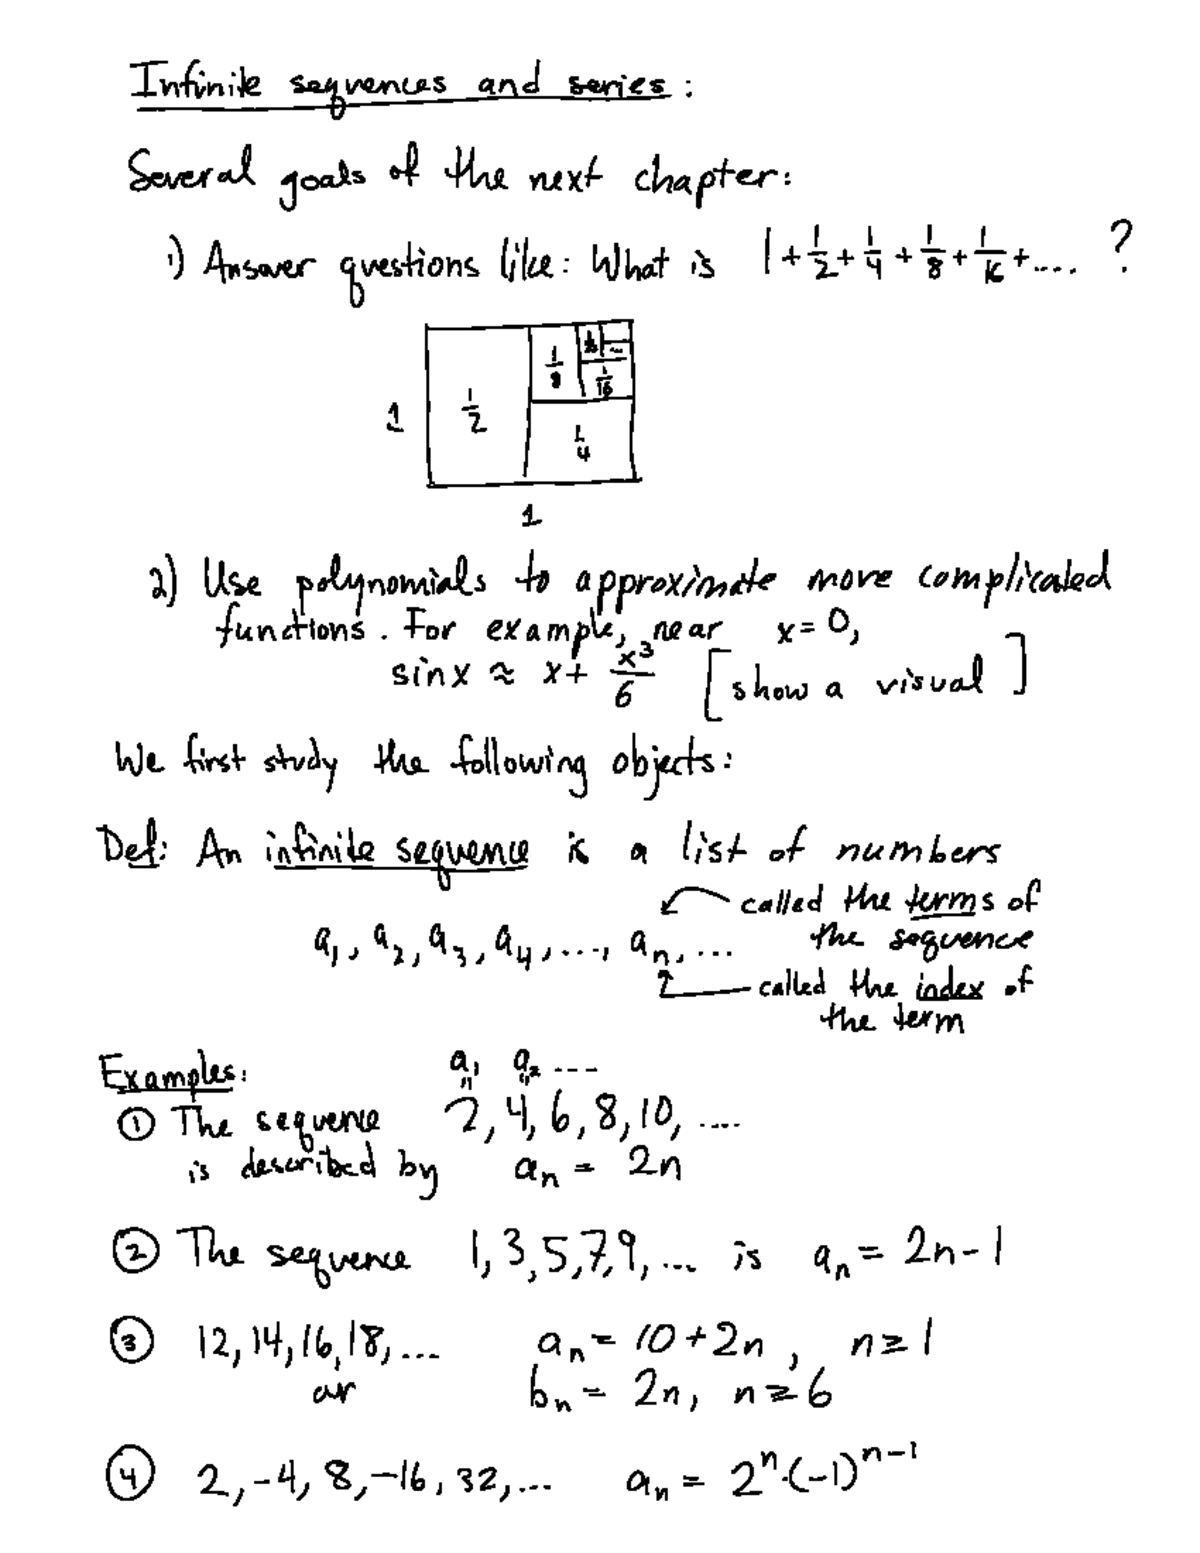 Infinite sequences and series:
Several goals of the next chapter:
1) Answer questions like: What is 1 + 1/2 + 1/4 + 1/8 + 1/16 + .... ?
1 1/2 1/8 1/32 ... 1/16 1/4
1
2) Use polynomials to approximate more complicated
functions. For example, near x = 0,
sin x ≈ x + x³/6 [show a visual]
We first study the following objects:
Def: An infinite sequence is a list of numbers
called the terms of
a₁, a₂, a₃, a₄, ..., aₙ, ... the sequence
called the index of
the term
Examples: a₁ a₂ ...
" "
① The sequence 2, 4, 6, 8, 10, ....
is described by aₙ = 2n
② The sequence 1, 3, 5, 7, 9, ... is aₙ = 2n - 1
③ 12, 14, 16, 18, ... aₙ = 10 + 2n, n ≥ 1
or bₙ = 2n, n ≥ 6
④ 2, -4, 8, -16, 32, ... aₙ = 2ⁿ·(-1)ⁿ⁻¹